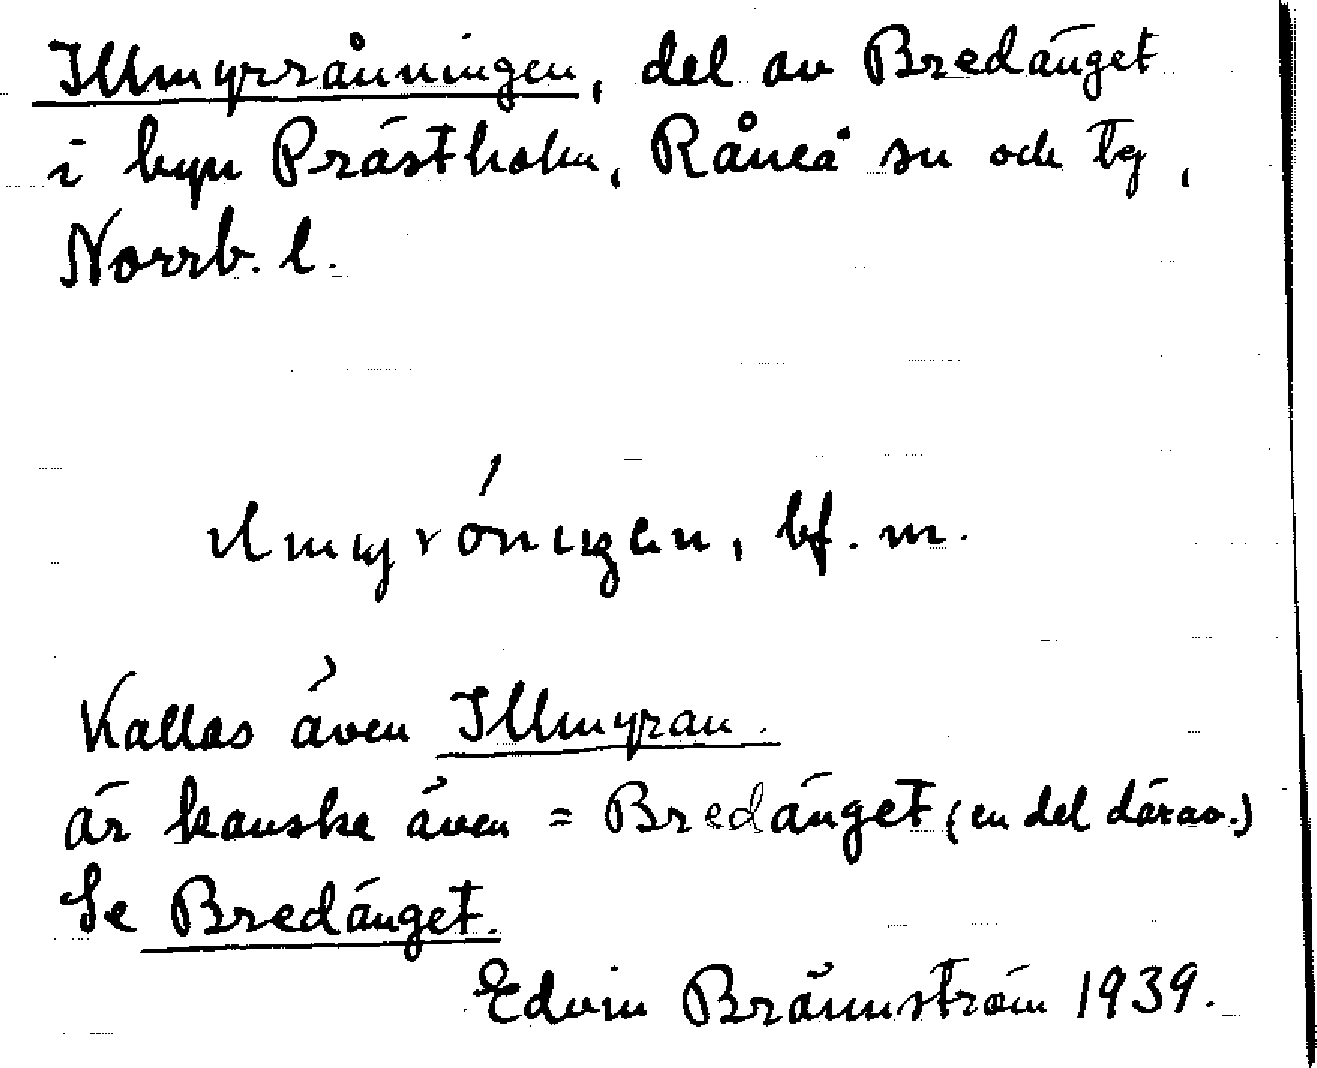 Illmyrrånningen, del av Bredänget
i byn Prästholm, Råneå sn och tg,
Norrb. l.
bf. m.
Kallas även Illmyran.
är kanske även = Bredänget (en del därav.)
Se Bredänget.
Edvin Brännström 1939.